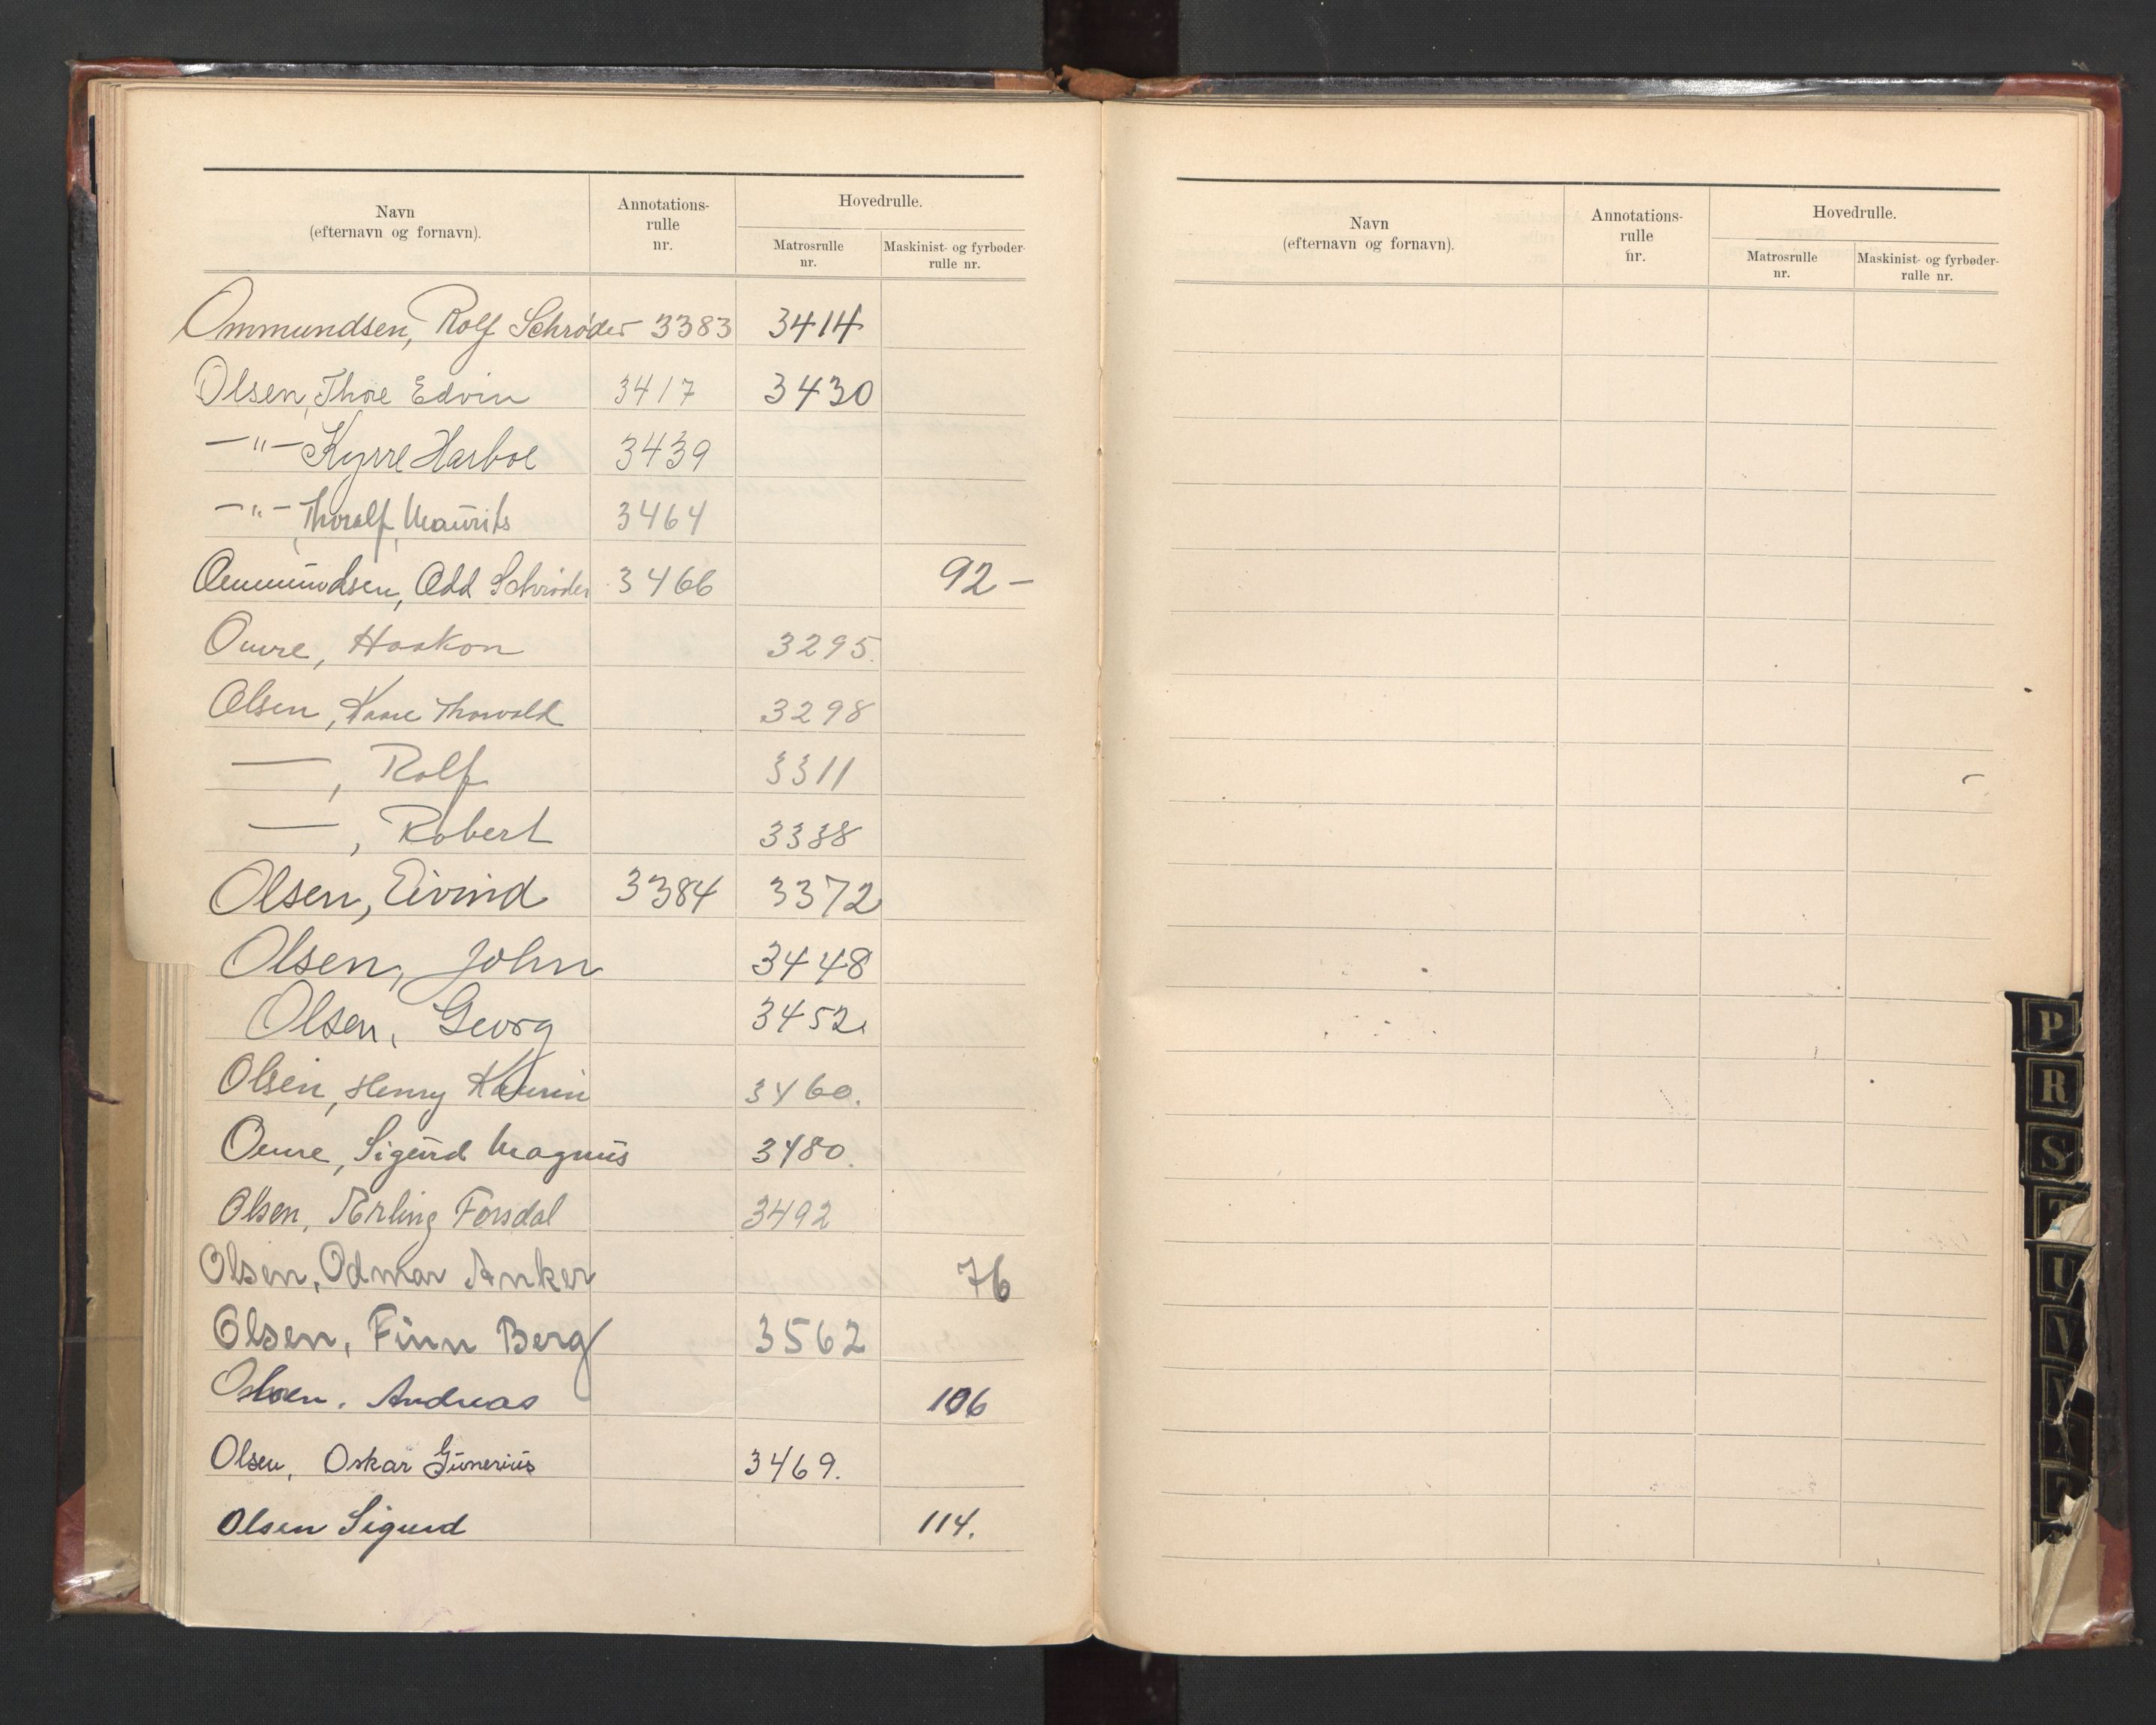 Navn
(efternavn og fornavn).
Annotations-
rulle
nr.
Hovedrulle.
Matrosrulle
nr.
Maskinist- og fyrbøder-
rulle nr.
Ommundsen, Rolf Schrøder 3383 3414
Olsen, Thore Edvin 3417 3430
—"— Kyrre Harboe 3439
—"— Thoralf Maurits 3464
Ommundsen, Odd Schrøder 3466 92 —
Omre, Haakon 3295.
Olsen, Kaare Thorvald 3298
—, Rolf 3311
—, Robert 3338
Olsen, Eivind 3384 3372
Olsen, John 3448
Olsen, Georg 3452.
Olsen, Henry Kaurin 3460.
Omre, Sigurd Magnus 3480.
Olsen, Erling Forsdal 3492
Olsen, Odmar Anker 76
Olsen, Finn Berg 3562
Andreas 106
Olsen, Oskar Gunerius 3469.
Olsen Sigurd 114.
Navn
(efternavn og fornavn).
Annotations-
rulle
nr.
Hovedrulle.
Matrosrulle
nr.
Maskinist- og fyrbøder-
rulle nr.
P
R
S
T
U
V